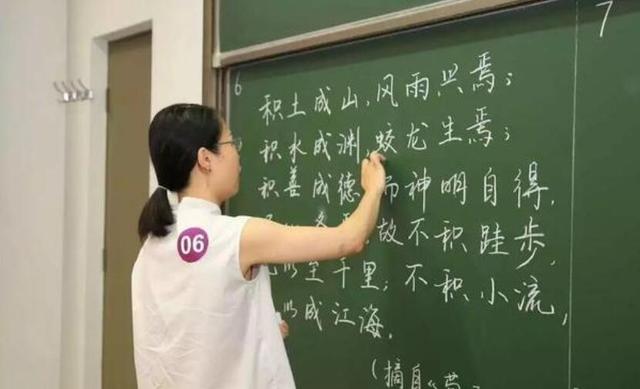 6
7
积土成山,风雨兴焉;
积水成渊,蛟龙生焉;
积善成德,而神明自得,
故不积跬步,
以至千里;不积小流,
以成江海。
(摘自
06